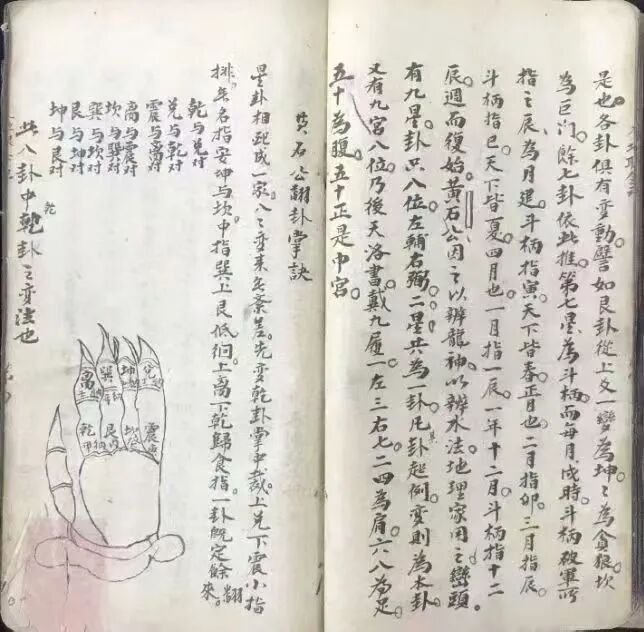 是也各卦俱有变動譬如艮卦從上爻一變為坤〻為貪狼坎
為巨门餘七卦依此推第七星為斗柄而每月戌時斗柄破軍所
指之辰為月建斗柄指寅天下皆春正月也二月指卯三月指辰
斗柄指巳天下皆夏四月也一月指一辰一年十二月斗柄指十二
辰週而復始黃石公因之以辨龍神以辨水法地理家用之巒頭
有九星卦只八位左輔右弼二星共為一卦凡卦起例变則為本卦
又有九宮八位乃後天洛書戴九履一左三右七二四為肩六八為足
五十為腹五十正是中宮
黃石公翻卦掌訣
星卦相配成一家八〻变来無紊差先变乾卦掌中裁上兑下震小指
排無名指安坤与坎中指巽上艮低徊上离下乾歸食指一卦既定餘翻來
乾与兑对
兑与乾对
震与离对
离与震对
坎与巽对
巽与坎对
艮与坤对
坤与艮对
共八卦中乾卦之变法也
离
巽
坤
兑
乾
艮
坎
震